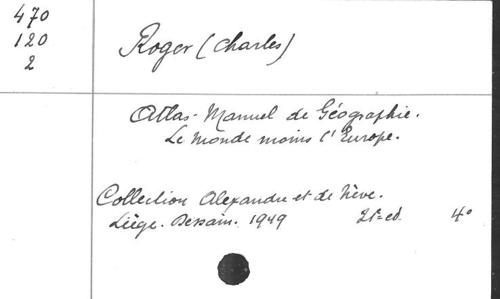 470
120
2
Roger (Charles)
Atlas-Manuel de Géographie.
Le Monde moins l'Europe.
Collection Alexandre et de Nève.
Liège. Dessain. 1949 21e ed. 4o